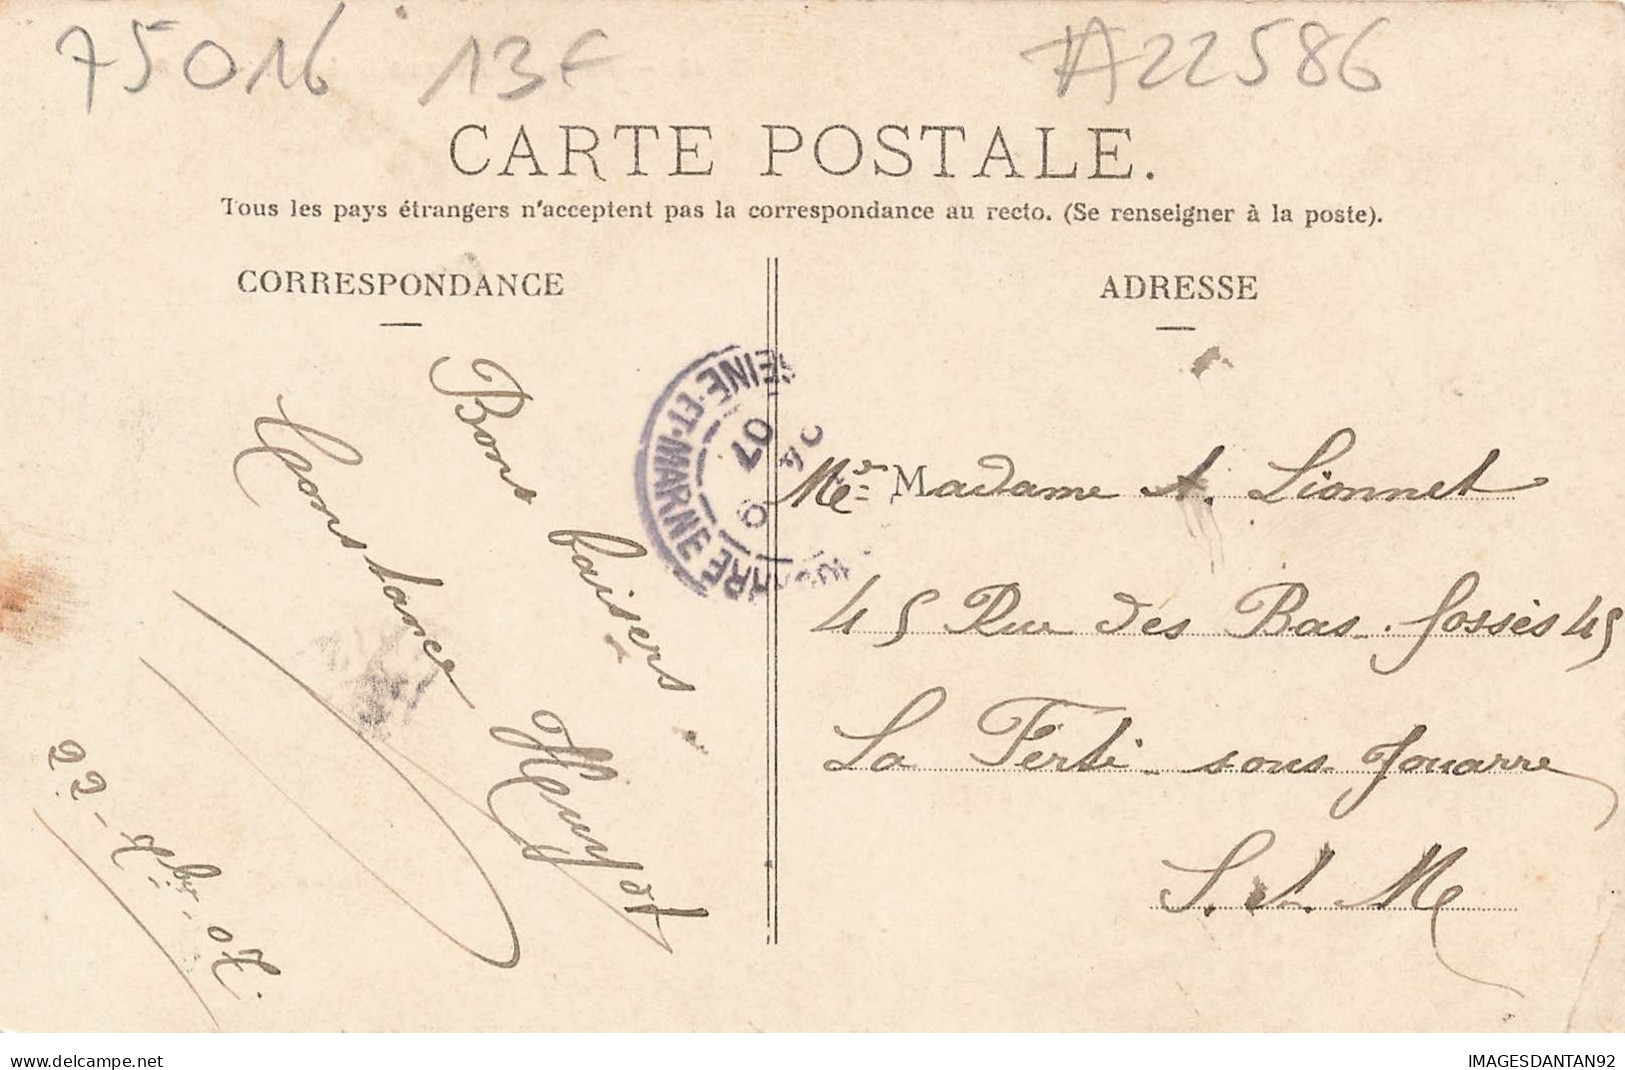 75016 13F #A22586
CARTE POSTALE.
Tous les pays étrangers n'acceptent pas la correspondance au recto. (Se renseigner à la poste).
CORRESPONDANCE
Bons baisers
Constance
22 - 7bre - 07.
ADRESSE
SEINE-ET-MARNE
07
Madame A. Lionnet
45 Rue des Bas-fossés 45
La Ferté-sous-Jouarre
S. et. M
www.delcampe.net
IMAGESDANTAN92